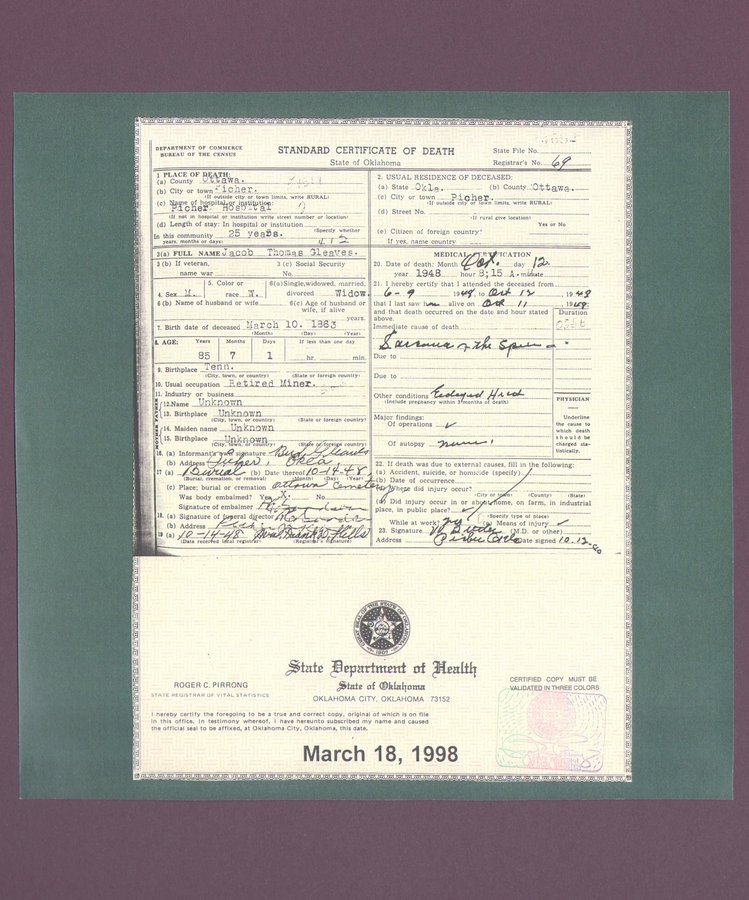 DEPARTMENT OF COMMERCE
BUREAU OF THE CENSUS
STANDARD CERTIFICATE OF DEATH
State of Oklahoma
State File No.
Registrar's No. 69
1 PLACE OF DEATH:
(a) County Ottawa.
(b) City or town Picher.
(If outside city or town limits, write RURAL)
(c) Name of hospital or institution:
Picher Hospital
(If not in hospital or institution write street number or location)
(d) Length of stay: In hospital or institution
(Specify whether
In this community 25 years.
years, months or days)
2. USUAL RESIDENCE OF DECEASED:
(a) State Okla. (b) County Ottawa.
(c) City or town Picher.
(If outside city or town limits, write RURAL)
(d) Street No.
(If rural give location)
Yes or No
(e) Citizen of foreign country?
If yes, name country
3(a) FULL NAME Jacob Thomas Gleaves.
3(b) If veteran, 3(c) Social Security
name war No.
4. Sex M. 5. Color or race W. 6(a) Single, widowed, married, divorced Widow.
6(b) Name of husband or wife 6(c) Age of husband or wife, if alive years.
7. Birth date of deceased March 10. 1863
(Month) (Day) (Year)
8. AGE: Years Months Days If less than one day
85 7 1 hr. min.
9. Birthplace Tenn.
(City, town, or county) (State or foreign country)
10. Usual occupation Retired Miner.
11. Industry or business
FATHER
12. Name Unknown
13. Birthplace Unknown
(City, town, or county) (State or foreign country)
MOTHER
14. Maiden name Unknown
15. Birthplace Unknown
(City, town, or county) (State or foreign country)
16. (a) Informant's signature Bud Gleaves
(b) Address Picher, Okla
17 (a) Burial (b) Date thereof 10-14-48
(Burial, cremation, or removal) (Month) (Day) (Year)
(c) Place; burial or cremation Ottawa Cemetery
Was body embalmed? Yes X No
Signature of embalmer
18. (a) Signature of funeral director
(b) Address
19 (a) 10-14-48
(Date received local registrar) (Registrar's signature)
MEDICAL CERTIFICATION
20. Date of death: Month Oct. day 12.
year 1948 hour 8;15 A. minute
21. I hereby certify that I attended the deceased from
6-9 1948, to Oct 12, 1948
that I last saw him alive on Oct 11, 1948
and that death occurred on the date and hour stated above.
Duration
Immediate cause of death
Sarcoma of the Spine
Due to
Due to
Other conditions
(Include pregnancy within 3 months of death)
PHYSICIAN
Underline the cause to which death should be charged statistically.
Major findings:
Of operations
Of autopsy none
22. If death was due to external causes, fill in the following:
(a) Accident, suicide, or homicide (specify)
(b) Date of occurrence
(c) Where did injury occur?
(City or town) (County) (State)
(d) Did injury occur in or about home, on farm, in industrial
place, in public place?
(Specify type of place)
While at work? (e) Means of injury
23. Signature (M.D. or other)
Address Picher Okla Date signed 10-12-
State Department of Health
State of Oklahoma
OKLAHOMA CITY, OKLAHOMA 73152
ROGER C. PIRRONG
STATE REGISTRAR OF VITAL STATISTICS
CERTIFIED COPY MUST BE
VALIDATED IN THREE COLORS
I hereby certify the foregoing to be a true and correct copy, original of which is on file
in this office. In testimony whereof, I have hereunto subscribed my name and caused
the official seal to be affixed, at Oklahoma City, Oklahoma, this date.
March 18, 1998